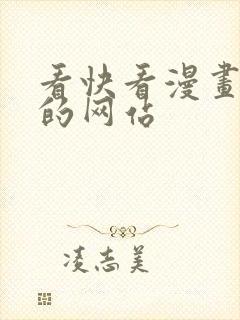 看快看漫畫
的网估
凌志美